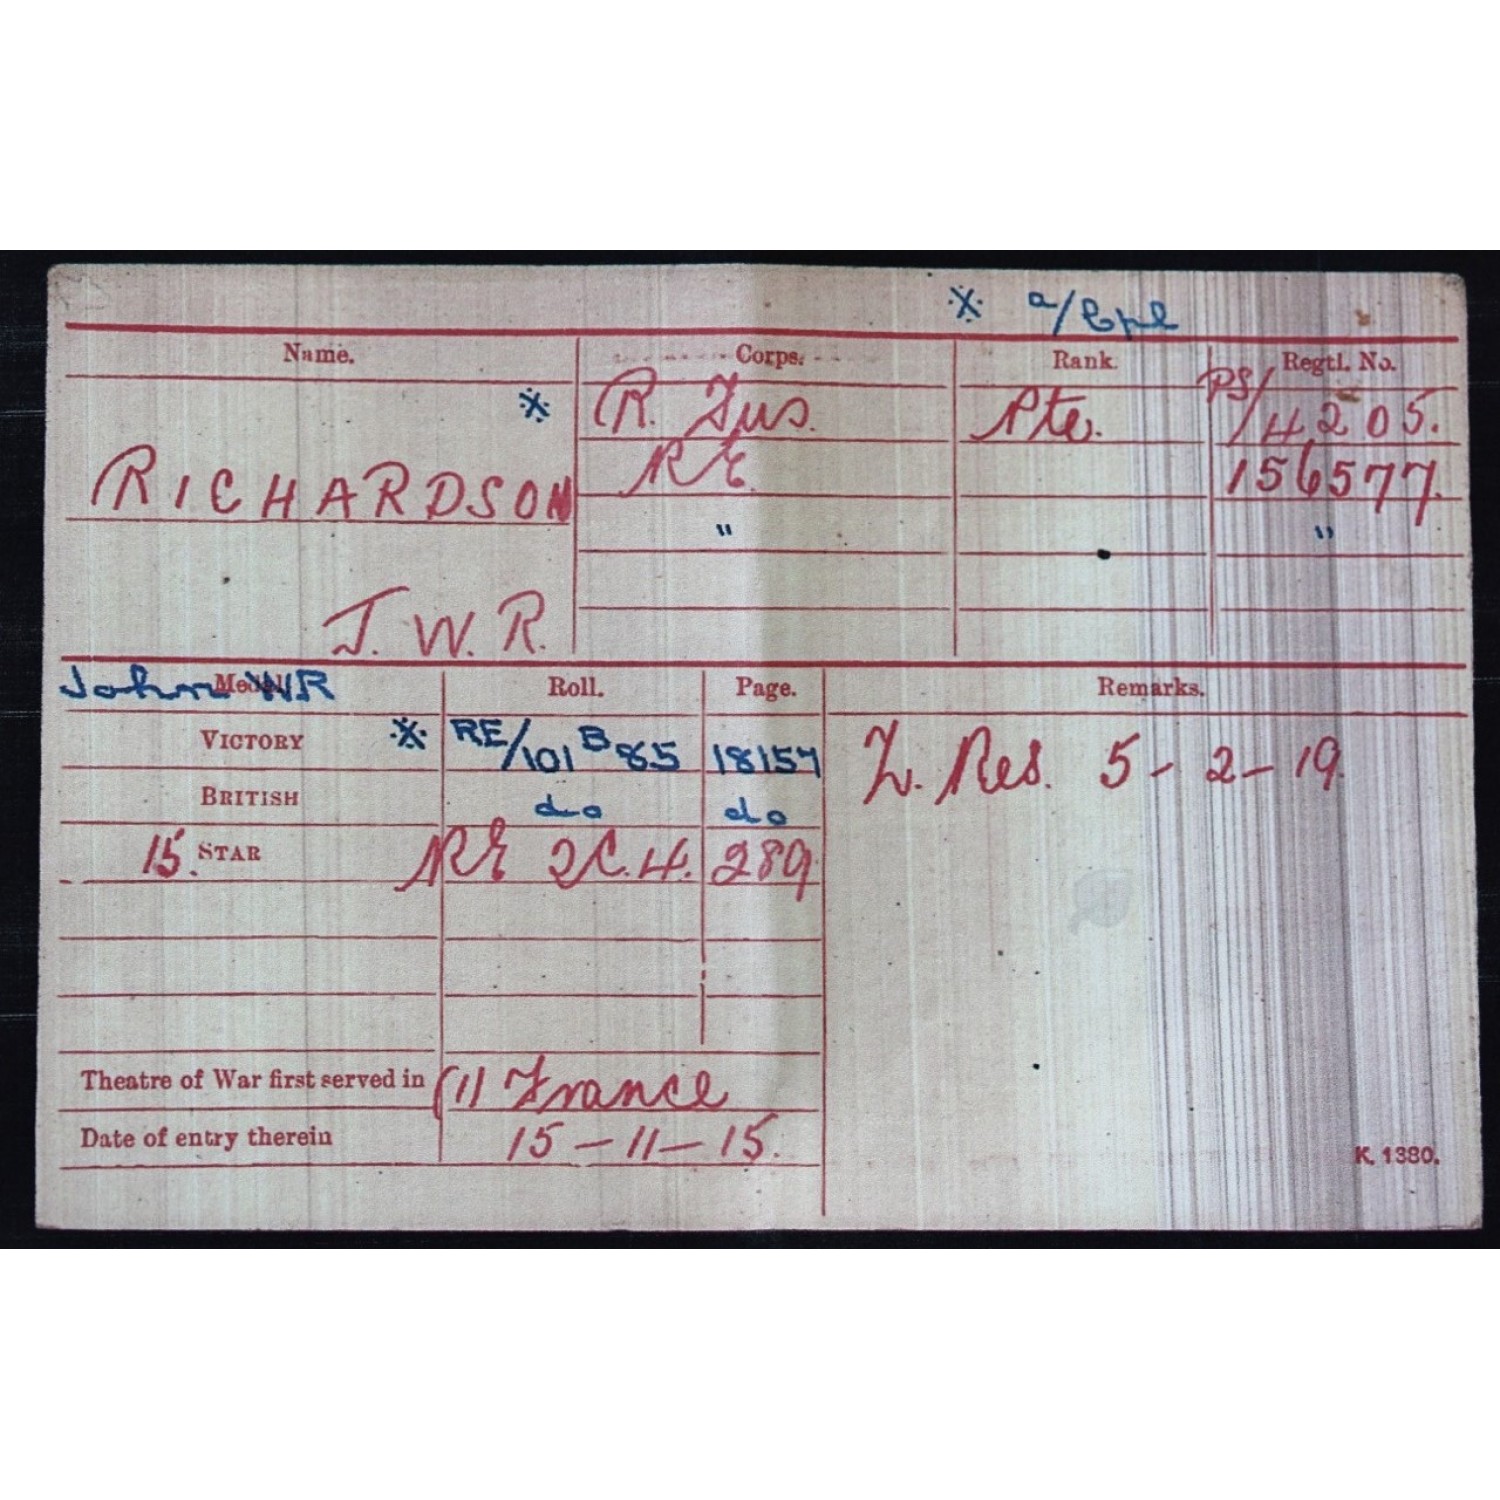 ※ a/Cpl
Name. Corps. Rank. Regtl. No.
※ R. Fus. Pte. PS/4205.
RICHARDSON R E. 156577.
" "
J. W. R.
John WR Medal Roll. Page. Remarks.
VICTORY ※ RE/101 B 85 18157 Z. Res. 5-2-19.
BRITISH do do
15. STAR RE 2C.4. 289.
Theatre of War first served in (1) France
Date of entry therein 15-11-15.
K. 1380.